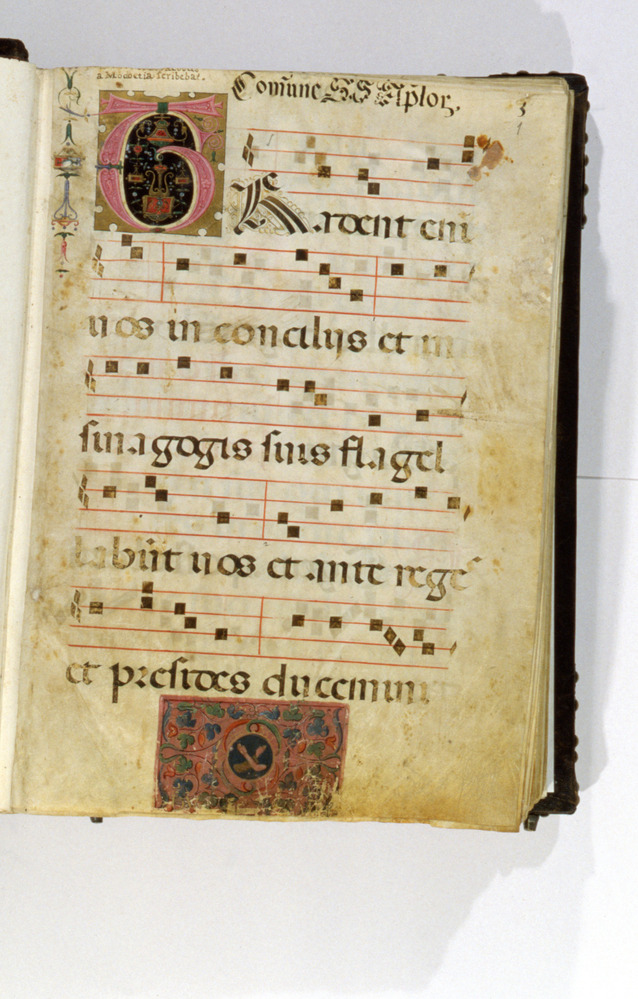 a Modoetia scribebat.
Comune SS Aplor.
3
TRadent eni
uos in concilijs et in
sinagogis suis flagel
labūt uos et ante reges
et presides ducemini